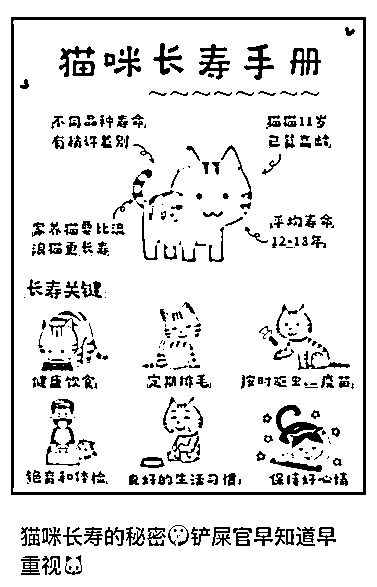 猫咪长寿手册
不同品种寿命
有稍许差别
猫猫11岁
已算高龄
家养猫要比流
浪猫更长寿
平均寿命
12-18年
长寿关键
健康饮食
定期梳毛
按时驱虫、疫苗
绝育和体检
良好的生活习惯
保持好心情
猫咪长寿的秘密铲屎官早知道早
重视